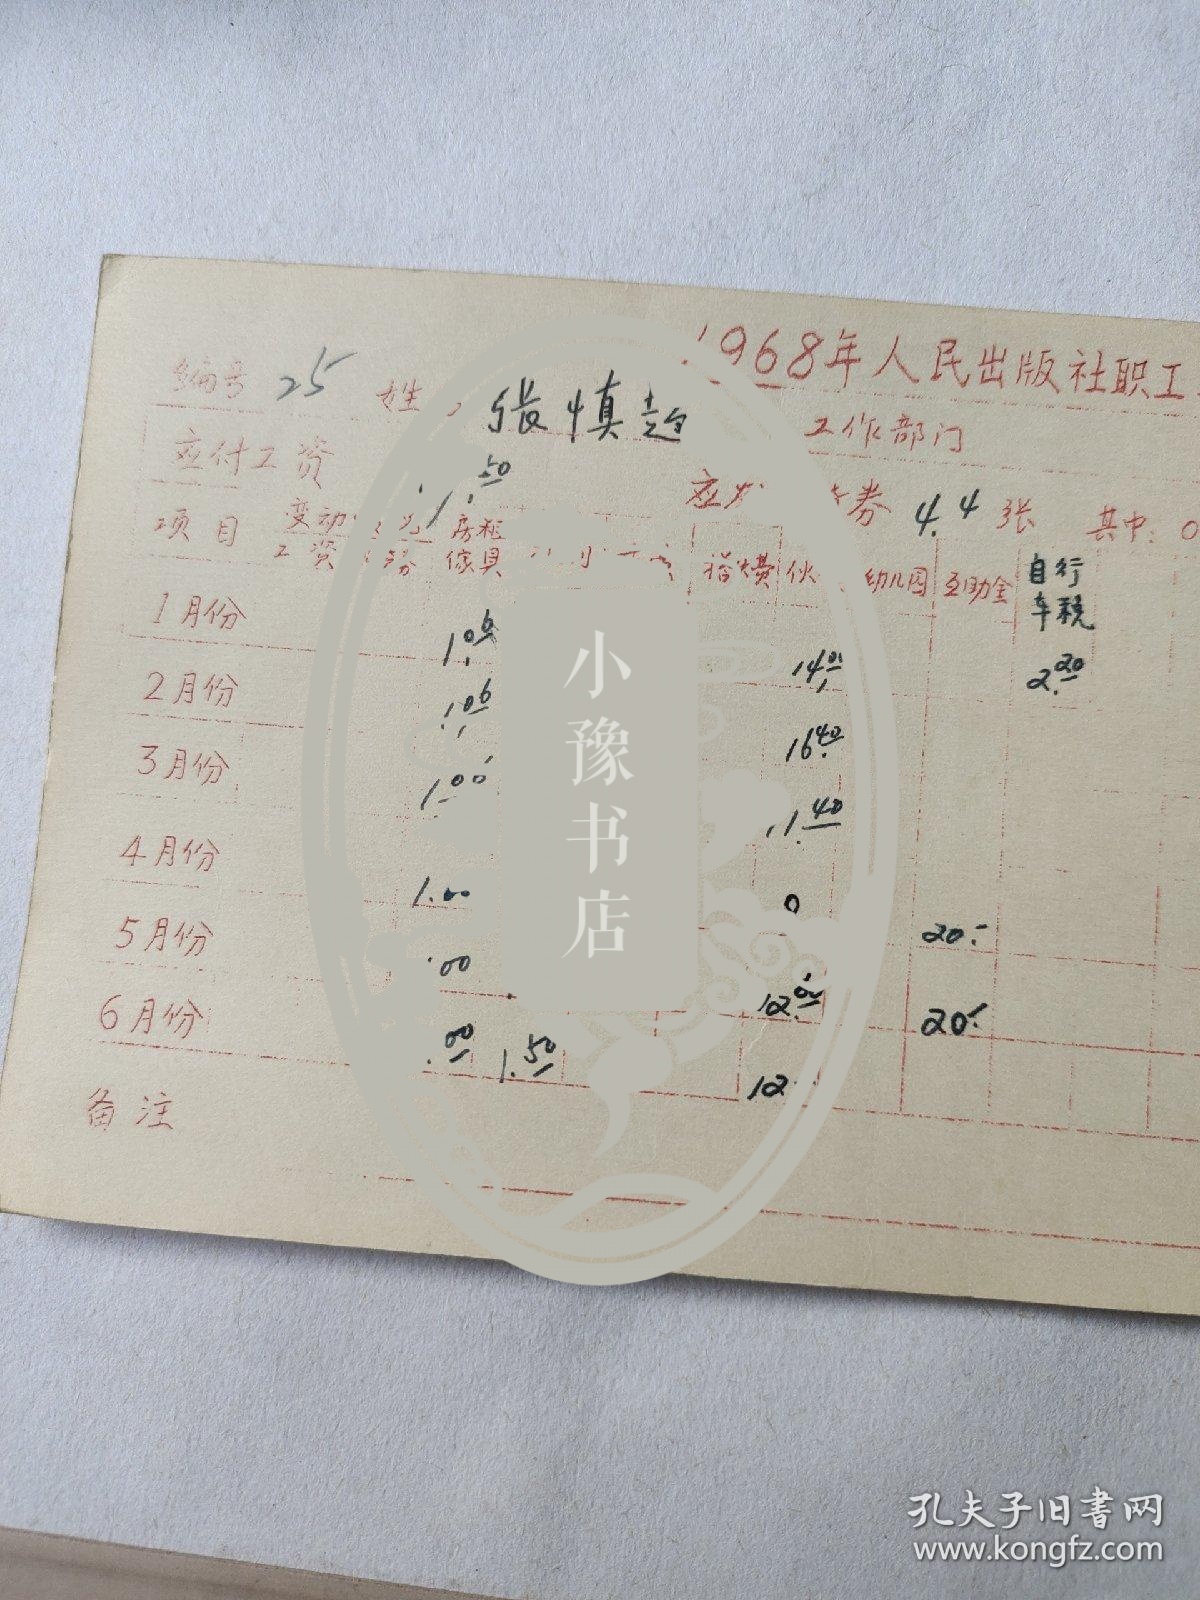 1968年人民出版社职工
编号 25 姓 张慎趋 工作部门
应付工资 .50 应 券 4.4 张 其中:0
项目 变动工资 房租傢具 伙 幼儿园 互助金 自行车税
1月份 1.06 14.00 2.20
2月份 1.06 16.40
3月份 1.00 11.40
4月份 1.00 0 20.-
5月份 .00 12.00 20.-
6月份 .00 1.50 12
备注
小豫书店
孔夫子旧书网
www.kongfz.com